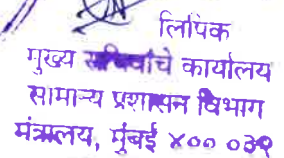 लिपिक
मुख्य सचिवांचे कार्यालय
सामान्य प्रशासन विभाग
मंत्रालय, मुंबई ४०० ०३२